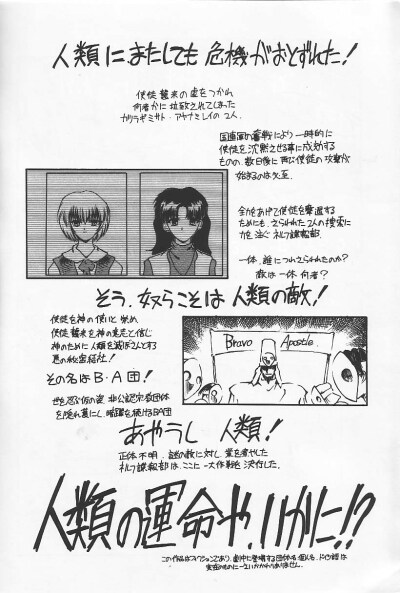 人類に、またしても危機がおとずれた！
使徒襲来の虚をつかれ
何者かに拉致されてしまった
カツラギミサト・アヤナミレイの2人。
国連軍の奮戦により一時的に
使徒を沈黙させる事に成功する
ものの、数日後に再び使徒の攻撃が
始まるのは必至。
全力をあげて使徒を撃退する
ためにも、とらわれた2人の捜索に
力を注ぐネルフ諜報部。
一体、誰につれさられたのか？
敵は一体何者？
そう、奴らこそは人類の敵！
使徒を神の使いと崇め
使徒襲来を神の意志と信じ
神のために人類を滅ぼさんとする
悪の秘密結社！
その名はB・A団！
Bravo Apostle
世を忍ぶ仮の姿、非公認宗教団体
を隠れ蓑にし、暗躍を続けるBA団
あやうし 人類！
正体不明、謎の敵に対し、業を煮やした
ネルフ諜報部は、ここに一大作戦を決行した。
人類の運命や、いかに!!?
この作品はフィクションであり、劇中に登場する団体名・個人名、ドイツ語は
実在のものに一さいかかわりありません。